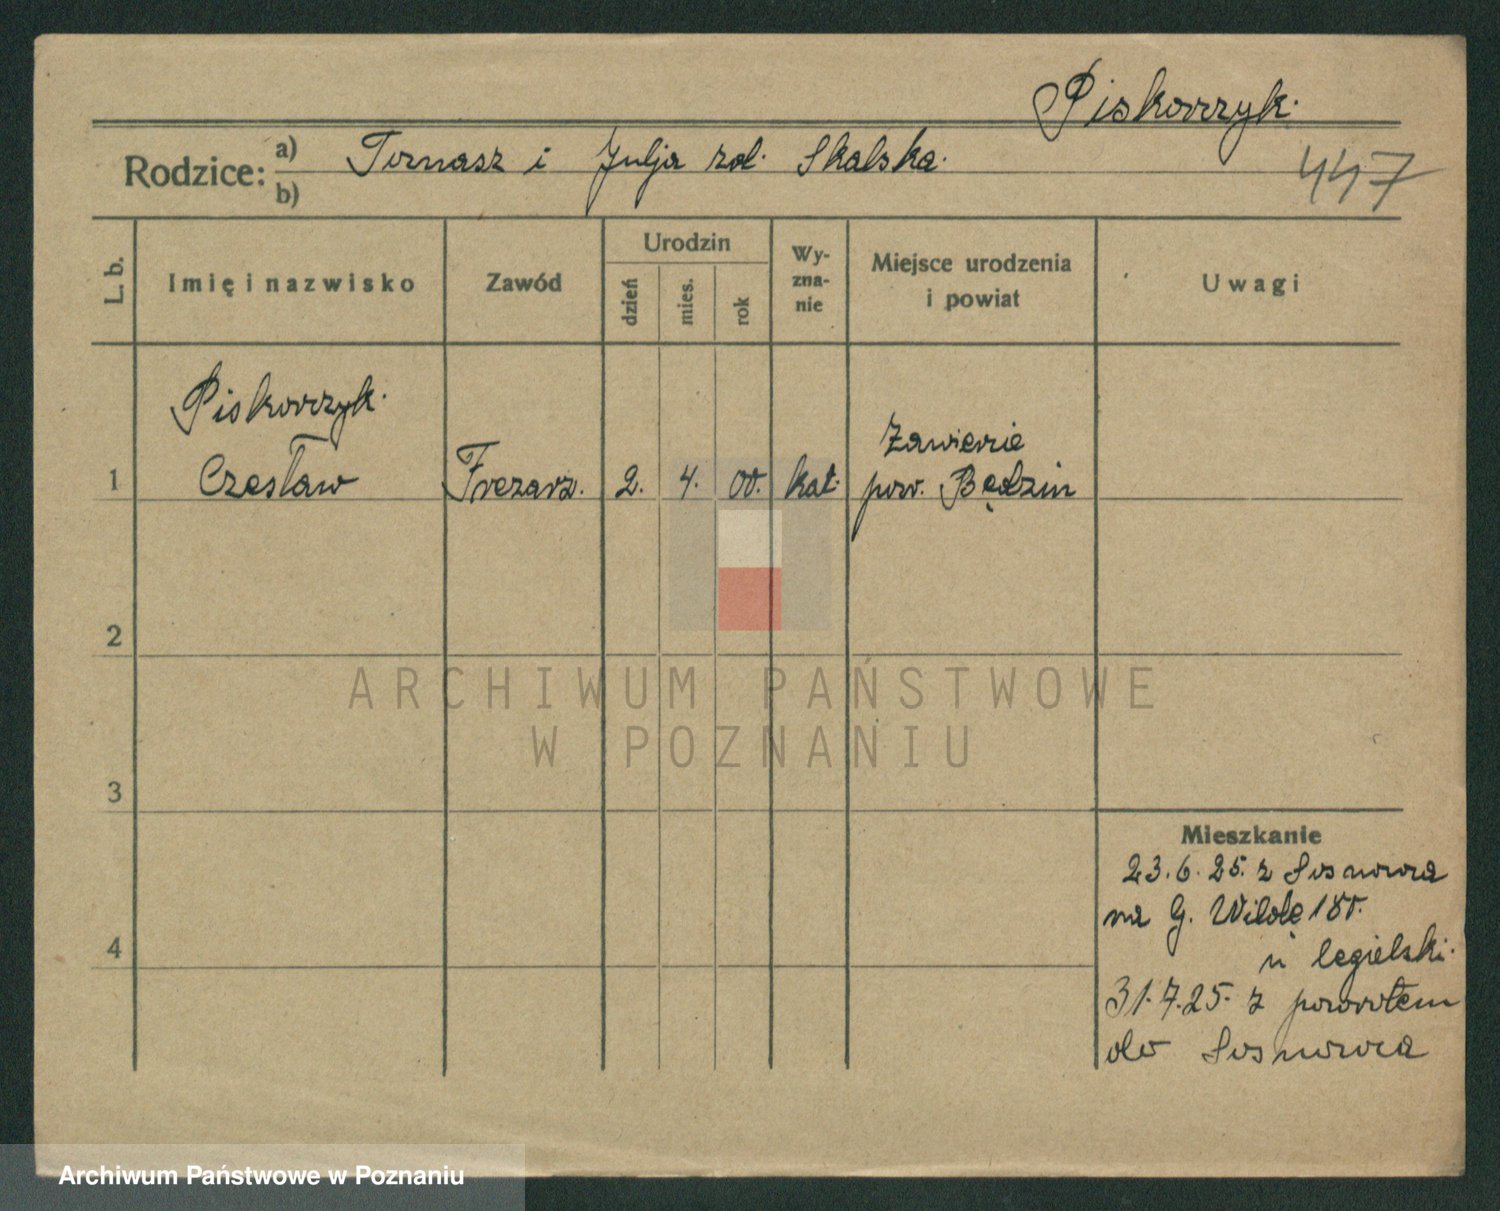 Piskorzyk.
Rodzice: a) Tomasz i Julja zd. Skalska.
b)
447
L. b.
Imię i nazwisko
Zawód
Urodzin
dzień
mies.
rok
Wy-
zna-
nie
Miejsce urodzenia
i powiat
Uwagi
Piskorzyk.
1 Czesław Frezarz. 2. 4. 00. kat.
Zawiercie
pow. Będzin
2
3
4
ARCHIWUM PAŃSTWOWE
W POZNANIU
Mieszkanie
23.6.25. z Sosnowca
na G. Wildę 180.
u Cegielski.
31.7.25. z powrotem
do Sosnowca
Archiwum Państwowe w Poznaniu